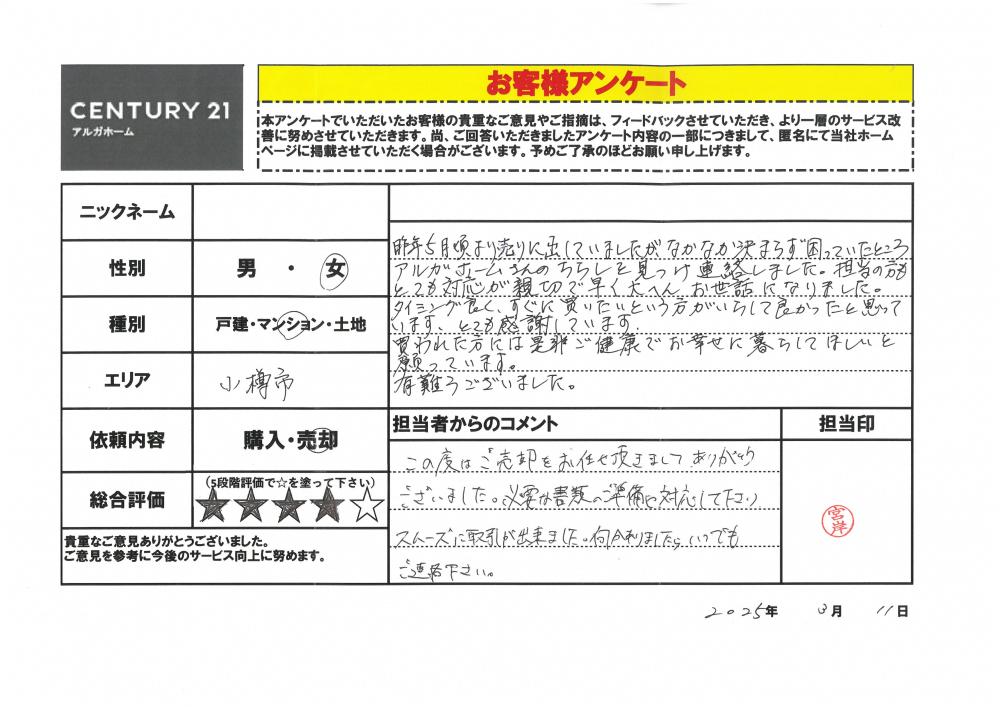 CENTURY 21
アルガホーム
お客様アンケート
本アンケートでいただいたお客様の貴重なご意見やご指摘は、フィードバックさせていただき、より一層のサービス改
善に努めさせていただきます。尚、ご回答いただきましたアンケート内容の一部につきまして、匿名にて当社ホーム
ページに掲載させていただく場合がございます。予めご了承のほどお願い申し上げます。
ニックネーム
性別
男 ・ 女
種別
戸建・マンション・土地
エリア
小樽市
依頼内容
購入・売却
総合評価
(5段階評価で☆を塗って下さい)
★★★★☆
貴重なご意見ありがとうございました。
ご意見を参考に今後のサービス向上に努めます。
昨年5月頃より売りに出していましたがなかなか決まらず困っていたところ
アルガホームさんのちらしを見つけ連絡しました。担当の方も
とても対応が親切で早く大へんお世話になりました。
タイミング良く、すぐに買いたいという方がいらして良かったと思って
います、とても感謝しています。
買われた方には是非ご健康でお幸せに暮らしてほしいと
願っています。
有難うございました。
担当者からのコメント
この度はご売却をお任せ頂きましてありがとう
ございました。必要な書類のご準備や対応して下さり
スムーズに取引が出来ました。何かありましたら、いつでも
ご連絡下さい。
担当印
宮岸
2025年 3月 11日